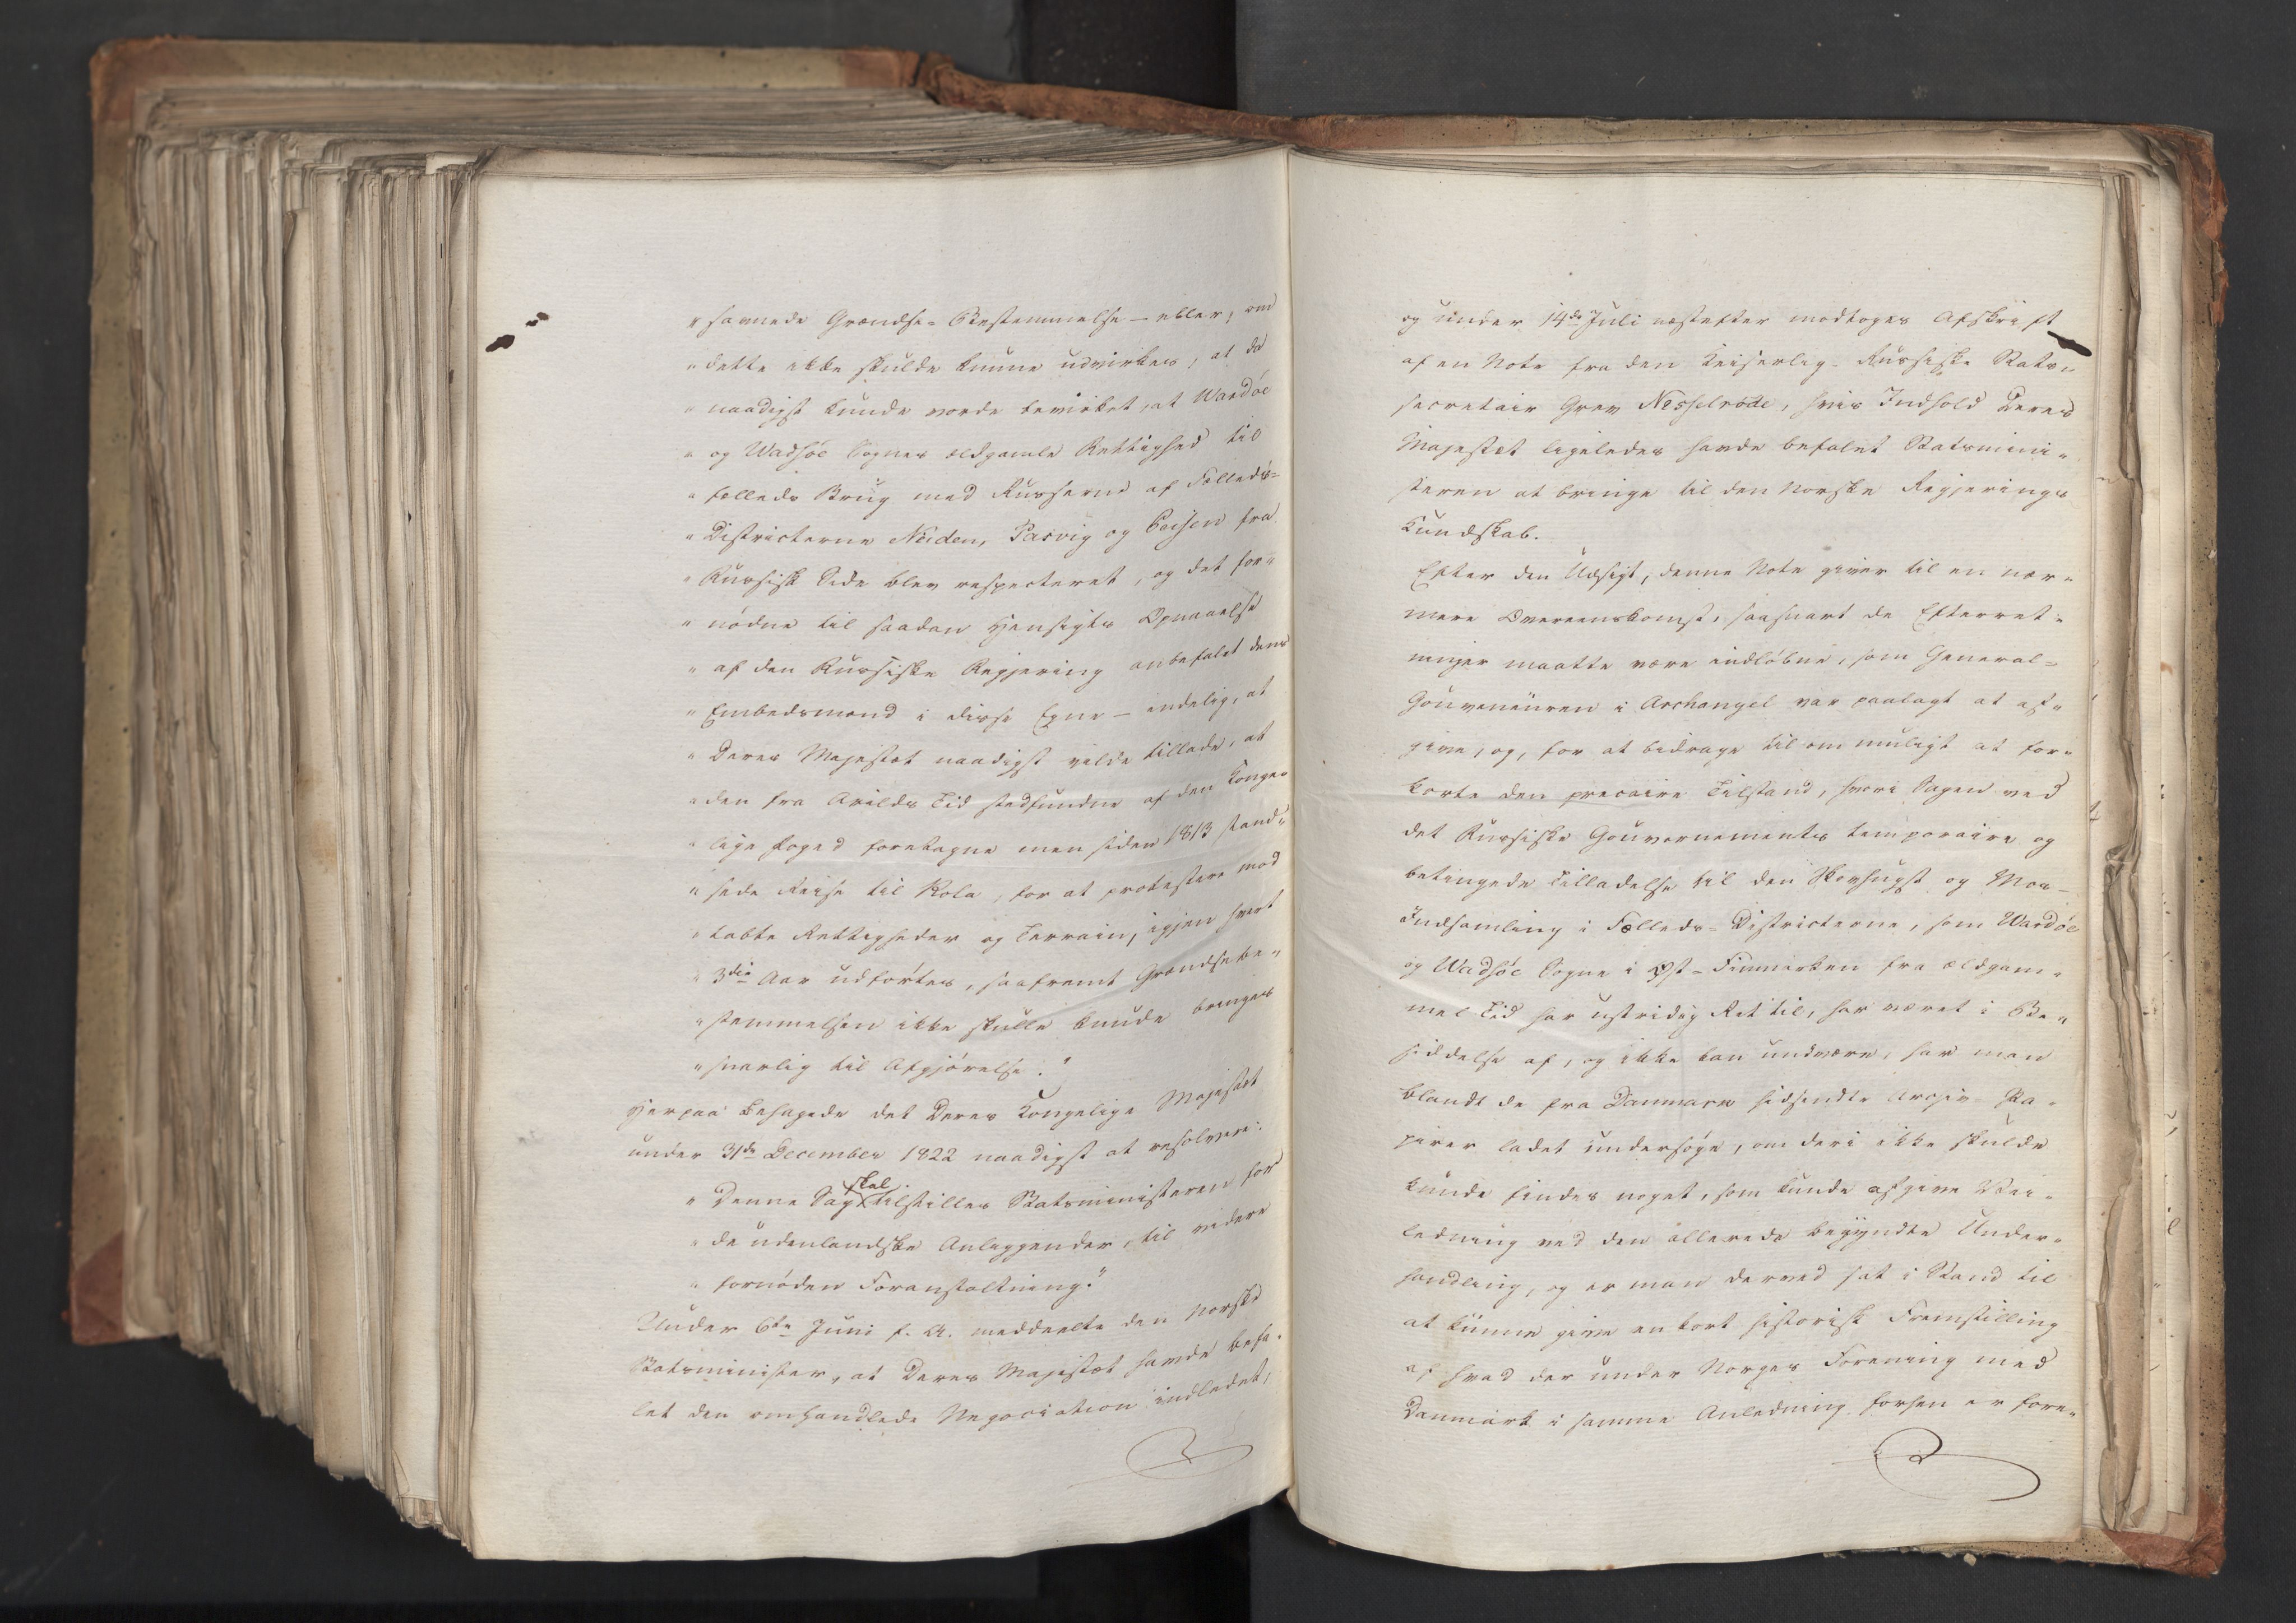 "savnede Grændse-Bestemmelse — eller, om
"dette ikke skulde kunne udvirkes, at da
"naadigst kunde vorde bevirket, at Wardöe
"og Wadsöe Sognes ældgamle Rettighed til
"fælleds Brug med Russerne af Fælleds=
"Districterne Neiden, Pasvig og Peisen fra
"Russisk Side blev respecteret, og det for="
"nödne til saadan Hensigts Opnaaelse
"af den Russiske Regjering anbefalet dens
"Embedsmænd i disse Egne — endelig, at
"Deres Majestæt naadigst vilde tillade, at
"den fra Arilds Tid stedfundne af den Konge=
"lige Foged foretagne men siden 1813 stand="
"sede Reise til Kola, for at protestere mod
"tabte Rettigheder og Terrain, igjen hvert
"3die Aar udförtes, saafremt Grændsebe="
"stemmelsen ikke skulle kunde bringes
"snarlig til Afgjörelse."
Herpaa behagede det Deres Kongelige Majestæt
under 31de December 1822 naadigst at resolvere:
"Denne Sag skal tilstilles Statsministeren for
"de udenlandske Anliggender, til videre
"fornöden Foranstaltning."
Under 6te Juni f. A. meddeelte den norske
Statsminister, at Deres Majestæt havde befa=
let den omhandlede Negociation indledet,
og under 14de Juli næstefter modtoges Afskrift
af en Note fra den Keiserlig-Russiske Stats=
secretair Grev Nesselrode, hvis Indhold Deres
Majestæt ligeledes havde befalet Statsmini=
steren at bringe til den Norske Regjerings
Kundskab.
Efter den Udsigt, denne Note giver til en nær=
mere Overeenskomst, saasnart de Efterret=
ninger maatte være indløbne, som General=
Gouverneuren i Archangel var paalagt at af=
give, og, for at bidrage til om muligt at for=
korte den precaire Tilstand, hvori Sagen ved
det Russiske Gouvernements temporaire og
betingede Tilladelse til den Skovhugst og Mos=
Indsamling i Fælleds-Districterne, som Wardöe
og Wadsöe Sogne i Øst-Finmarken fra ældgam=
mel Tid har ustridig Ret til, har været i Be=
siddelse af, og ikke kan undvære, har man
blandt de fra Danmark hidsendte Archiv-Pa=
pirer ladet undersöge, om deri ikke skulde
kunde findes noget, som kunde afgive Vei=
ledning ved den allerede begyndte Under=
handling, og er man derved sat i Stand til
at kunne give en kort historisk Fremstilling
af hvad der under Norges Forening med
Danmark i samme Anledning forhen er fore=